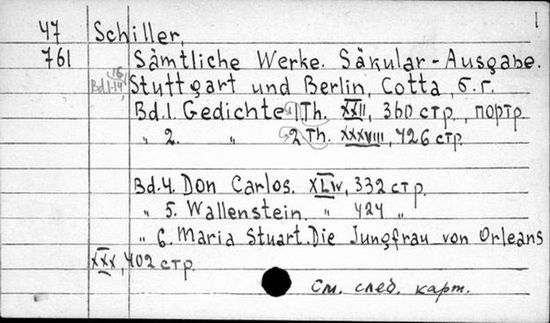 1
47 Schiller,
761 Sämtliche Werke. Säkular-Ausgabe.
Bd.1-14 16 Stuttgart und Berlin, Cotta, б.г.
Bd.1. Gedichte 1 Th. XXII, 360 стр., портр.
„ 2. „ 2 Th. XXXVIII, 426 стр.
Bd.4. Don Carlos. XLIV, 332 стр.
„ 5. Wallenstein. „ 424 „
„ 6. Maria Stuart. Die Jungfrau von Orleans
XXX, 402 стр.
См. след. карт.